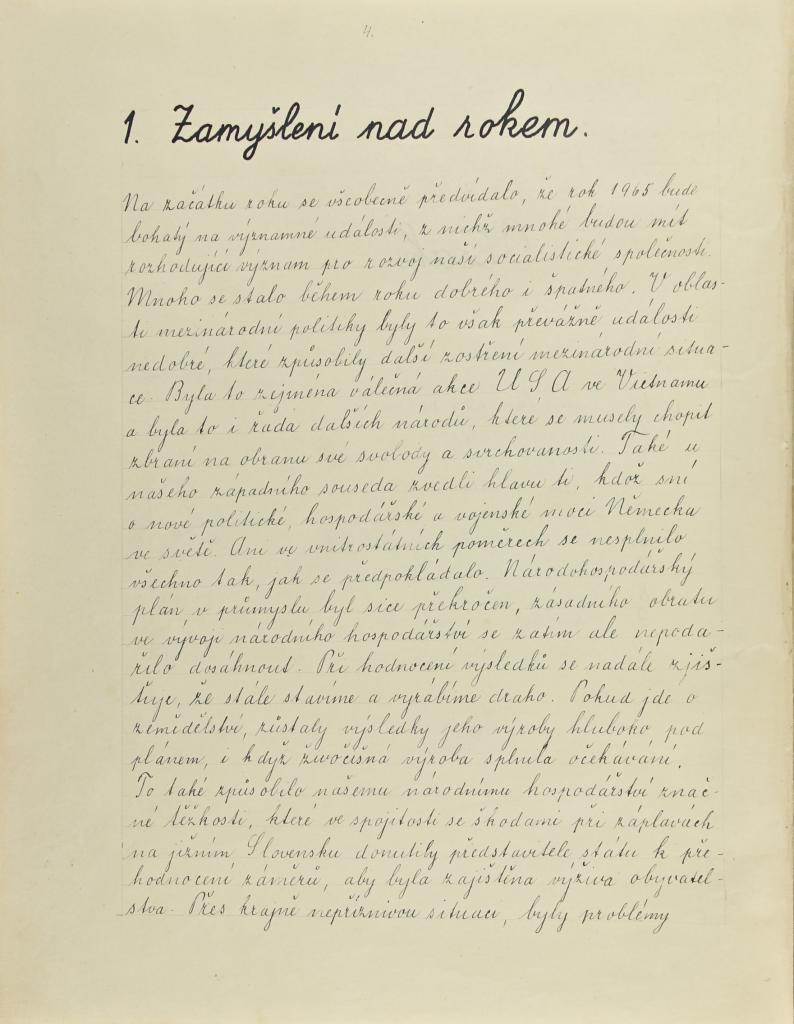 4.
1. Zamyšlení nad rokem.
Na začátku roku se všeobecně předvídalo, že rok 1965 bude
bohatý na významné události, z nichž mnohé budou mít
rozhodující význam pro rozvoj naší socialistické společnosti.
Mnoho se stalo během roku dobrého i špatného. V oblas-
ti mezinárodní politiky byly to však převážně události
nedobré, které způsobily další zostření mezinárodní situa-
ce. Byla to zejména válečná akce USA ve Vietnamu
a byla to i řada dalších národů, které se musely chopit
zbraní na obranu své svobody a svrchovanosti. Také u
našeho západního souseda zvedli hlavu ti, kdož sní
o nové politické, hospodářské a vojenské moci Německa
ve světě. Ani ve vnitrostátních poměrech se nesplnilo
všechno tak, jak se předpokládalo. Národohospodářský
plán v průmyslu byl sice překročen, zásadního obratu
ve vývoji národního hospodářství se zatím ale nepoda-
řilo dosáhnout. Při hodnocení výsledků se nadále zjiš-
ťuje, že stále stavíme a vyrábíme draho. Pokud jde o
zemědělství, zůstaly výsledky jeho výroby hluboko pod
plánem, i když živočišná výroba splnila očekávání.
To také způsobilo našemu národnímu hospodářství znač-
né těžkosti, které ve spojitosti se škodami při záplavách
na jižním Slovensku donutily představitele státu k pře-
hodnocení záměrů, aby byla zajištěna výživa obyvatel-
stva. Přes krajně nepříznivou situaci, byly problémy